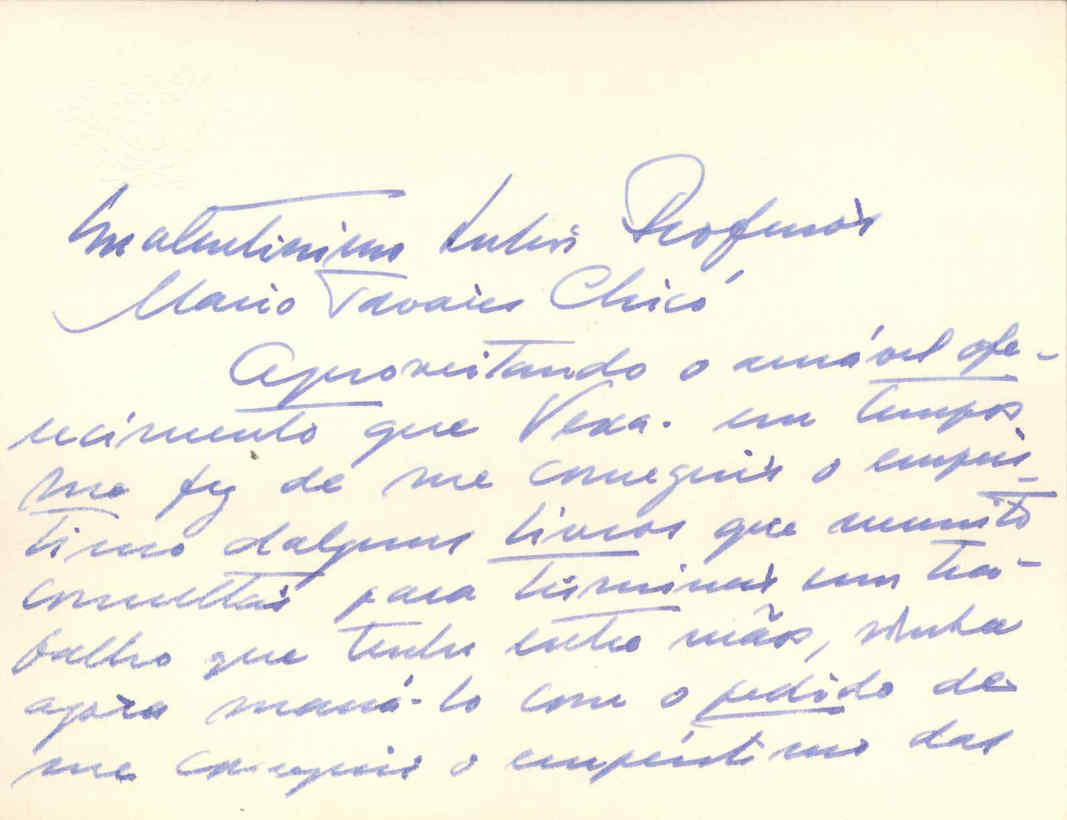 Senhor Professor
Mario Tavares Chicó
Aproveitando o amável ofe-
recimento que Vexa. em tempos
me fez de me conseguir o emprés-
timo dalguns livros que
consultar para terminar um tra-
balho que tenho entre mãos, vinha
agora maçá-lo com o pedido de
me conseguir o empréstimo das